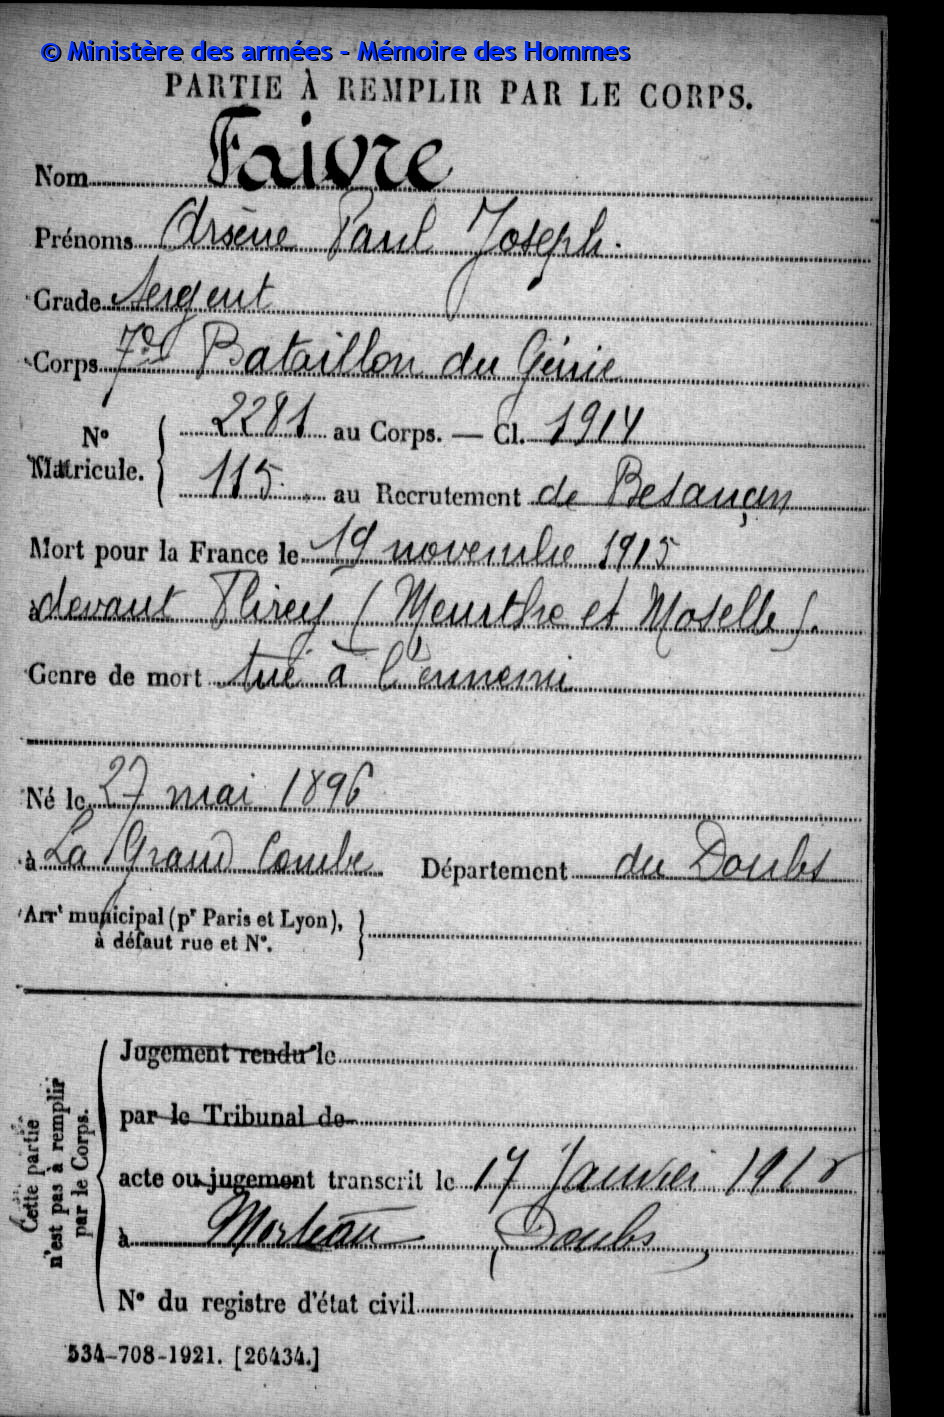 © Ministère des armées - Mémoire des Hommes
PARTIE À REMPLIR PAR LE CORPS.
Nom Faivre
Prénoms Arsène Paul Joseph.
Grade Sergent
Corps 7e Bataillon du Génie
N° Matricule. 2281 au Corps. — Cl. 1914
115 au Recrutement de Besançon
Mort pour la France le 19 novembre 1915
à devant Flirey (Meurthe et Moselle).
Genre de mort tué à l'ennemi
Né le 27 mai 1896
à La Grand Combe Département du Doubs
Arrt municipal (pr Paris et Lyon),
à défaut rue et N°.
Cette partie n'est pas à remplir par le Corps.
Jugement rendu le
par le Tribunal de
acte ou jugement transcrit le 17 Janvier
à Morteau (Doubs)
N° du registre d'état civil
534-708-1921. [26434.]